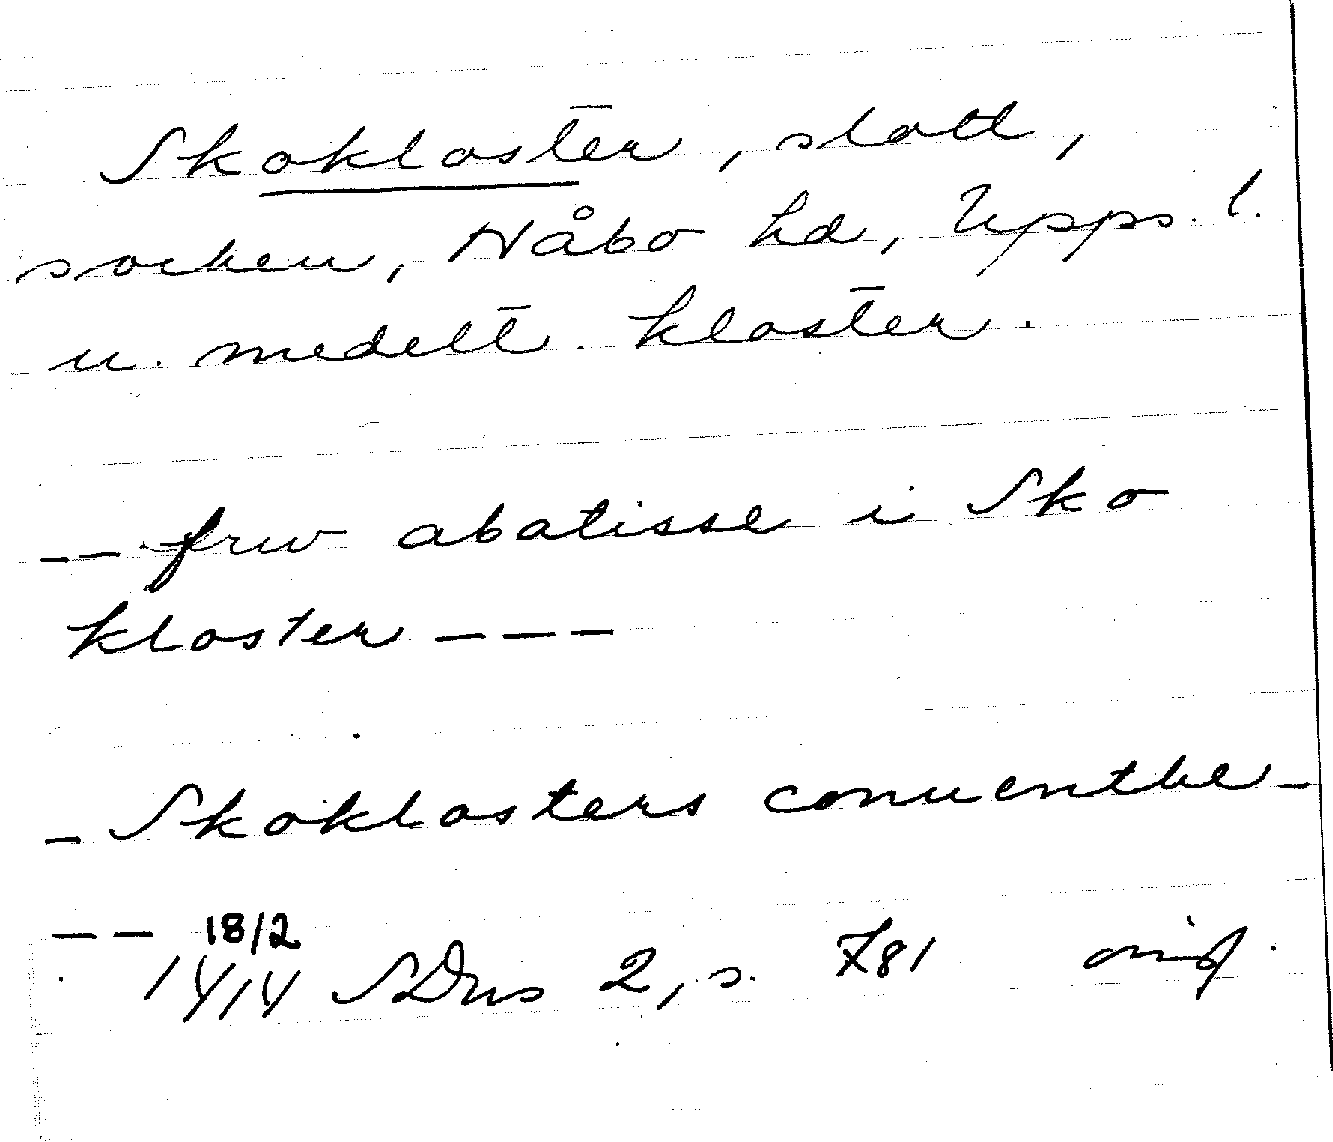 Skokloster, slott,
socken, Håbo hd, Upps. l.
u. medelt. kloster.
-- frw abatisse i Sko
kloster ---
- Skoklosters conuentbe-
-- 18/2
1414 SDns 2, s. 781 orig.